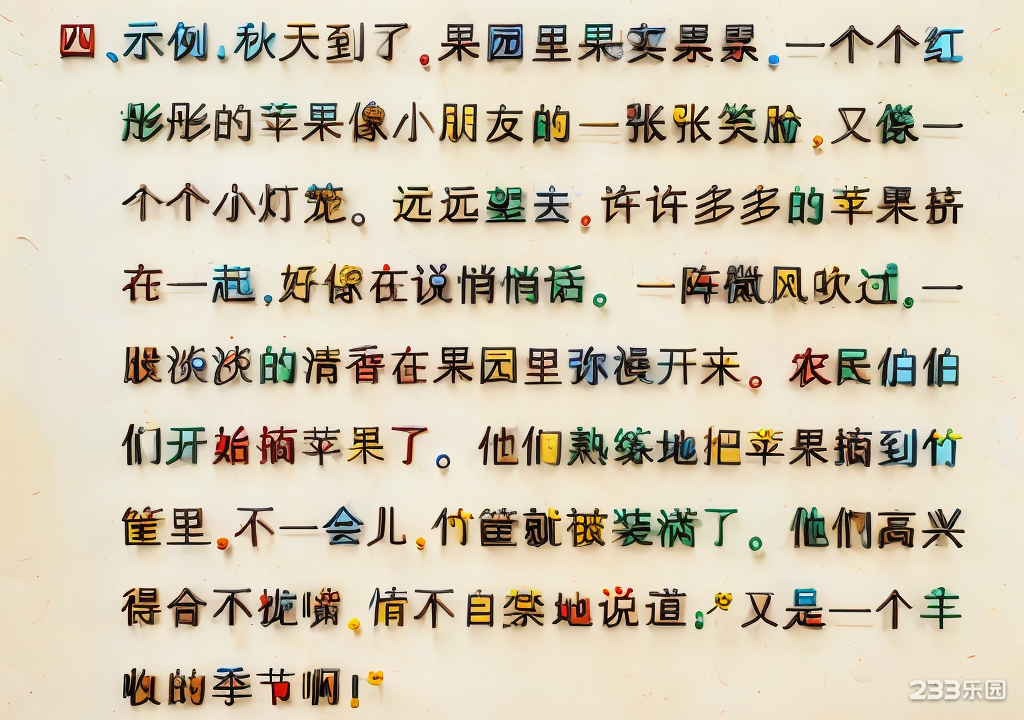 四、示例:秋天到了,果园里果实累累,一个个红
彤彤的苹果像小朋友的一张张笑脸,又像一
个个小灯笼。远远望去,许许多多的苹果挤
在一起,好像在说悄悄话。一阵微风吹过,一
股淡淡的清香在果园里弥漫开来。农民伯伯
们开始摘苹果了。他们熟练地把苹果摘到竹
筐里,不一会儿,竹筐就被装满了。他们高兴
得合不拢嘴,情不自禁地说道:“又是一个丰
收的季节啊!”
233乐园